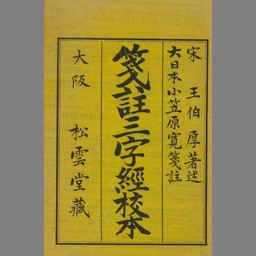 宋　王伯厚著述
大日本小笠原寛箋註
箋註三字經校本
大阪　松雲堂藏